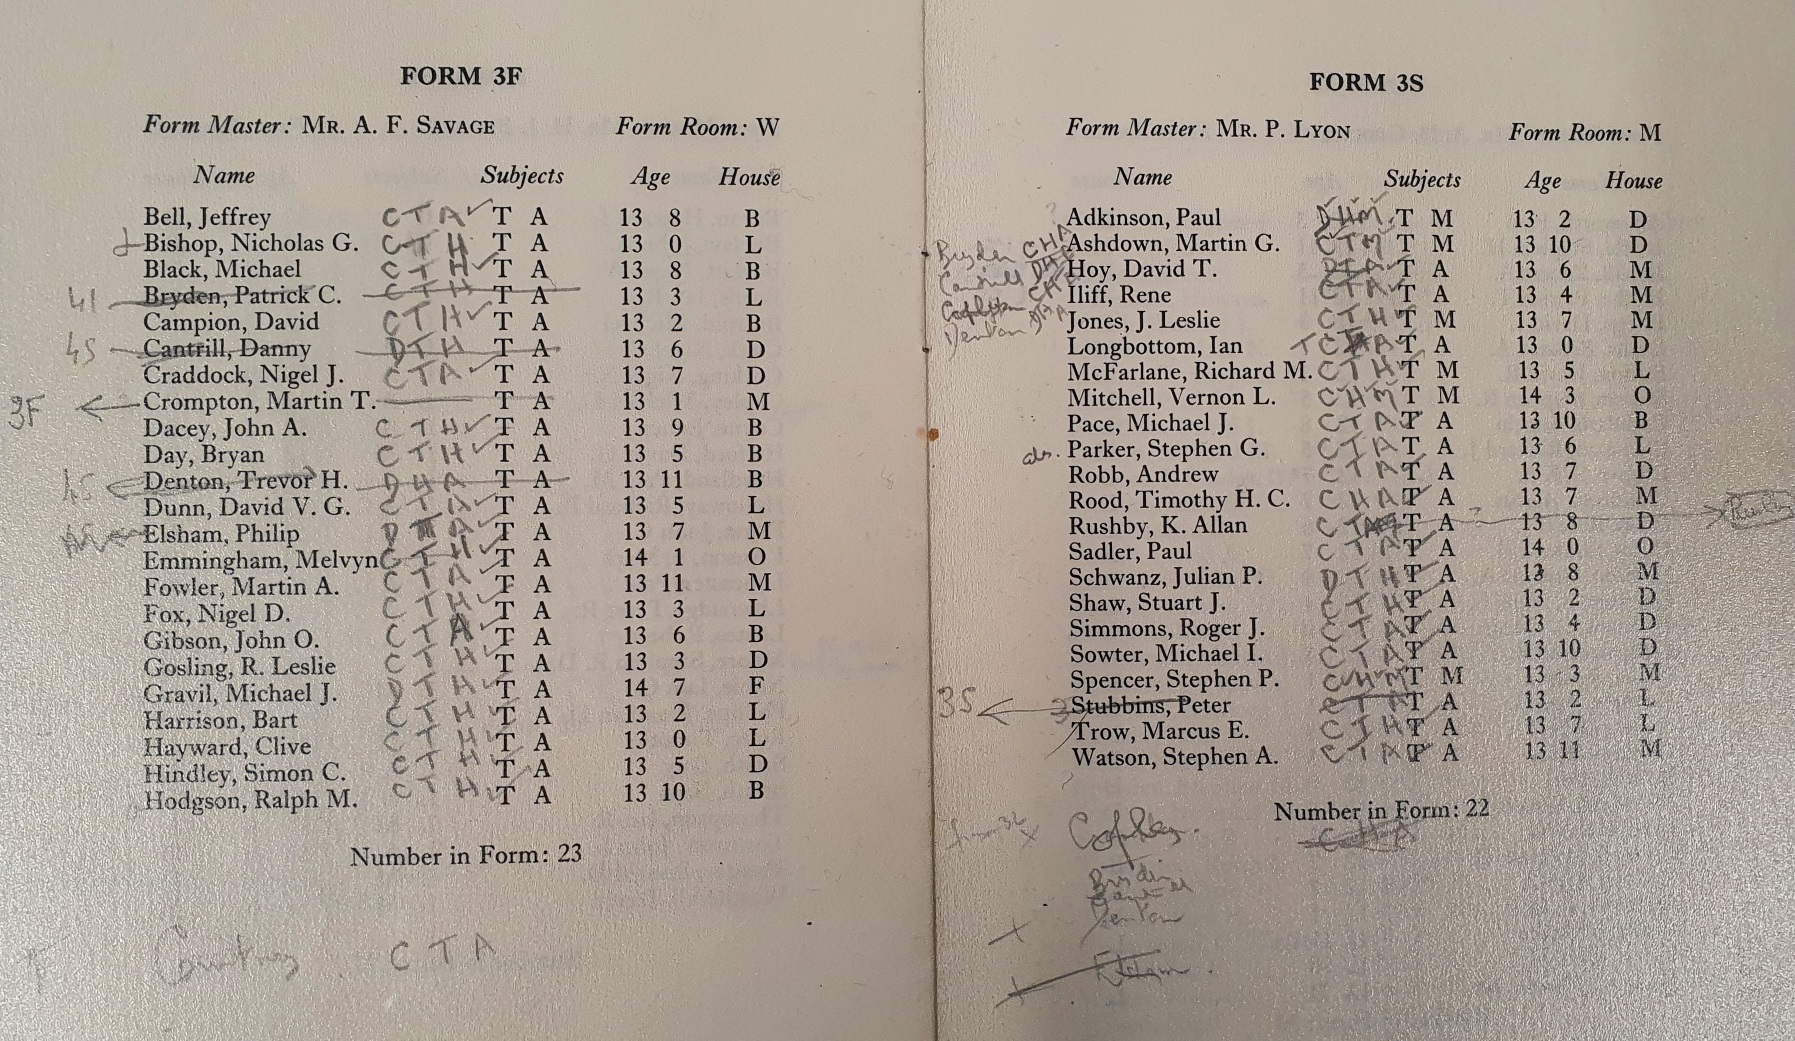 FORM 3F
Form Master: MR. A. F. SAVAGE Form Room: W
Name Subjects Age House
Bell, Jeffrey C T A ✓ T A 13 8 B
Bishop, Nicholas G. C T H T A 13 0 L
Black, Michael C T H ✓ T A 13 8 B
41 Bryden, Patrick C. C T H T A 13 3 L
Campion, David C T H ✓ T A 13 2 B
45 Cantrill, Danny D T H T A 13 6 D
Craddock, Nigel J. C T A ✓ T A 13 7 D
3F ← Crompton, Martin T. T A 13 1 M
Dacey, John A. C T H ✓ T A 13 9 B
Day, Bryan C T H ✓ T A 13 5 B
45 ← Denton, Trevor H. D H A T A 13 11 B
Dunn, David V. G. C T A ✓ T A 13 5 L
Elsham, Philip D A ✓ T A 13 7 M
Emmingham, Melvyn C T H ✓ T A 14 1 O
Fowler, Martin A. C T A ✓ T A 13 11 M
Fox, Nigel D. C T H ✓ T A 13 3 L
Gibson, John O. C T A ✓ T A 13 6 B
Gosling, R. Leslie C T H ✓ T A 13 3 D
Gravil, Michael J. D T H ✓ T A 14 7 F
Harrison, Bart C T H ✓ T A 13 2 L
Hayward, Clive C T H ✓ T A 13 0 L
Hindley, Simon C. C T H ✓ T A 13 5 D
Hodgson, Ralph M. C T H ✓ T A 13 10 B
Number in Form: 23
C T A
FORM 3S
Form Master: MR. P. LYON Form Room: M
Name Subjects Age House
Adkinson, Paul D H M ✓ T M 13 2 D
Bryden C H A Ashdown, Martin G. C T M ✓ T M 13 10 D
Cantrill D H Hoy, David T. T A 13 6 M
Iliff, Rene C T A ✓ T A 13 4 M
Denton Jones, J. Leslie C T H ✓ T M 13 7 M
Longbottom, Ian T A 13 0 D
McFarlane, Richard M. C T H ✓ T M 13 5 L
Mitchell, Vernon L. C H M ✓ T M 14 3 O
Pace, Michael J. C T A ✓ T A 13 10 B
abs. Parker, Stephen G. C T A ✓ T A 13 6 L
Robb, Andrew C T A ✓ T A 13 7 D
Rood, Timothy H. C. C H A ✓ T A 13 7 M
Rushby, K. Allan C T T A ? 13 8 D
Sadler, Paul C T A ✓ T A 14 0 O
Schwanz, Julian P. D T H ✓ T A 13 8 M
Shaw, Stuart J. C T H ✓ T A 13 2 D
Simmons, Roger J. C T A ✓ T A 13 4 D
Sowter, Michael I. C T A ✓ T A 13 10 D
Spencer, Stephen P. C H M ✓ T M 13 3 M
3S ← Stubbins, Peter C T A T A 13 2 L
Trow, Marcus E. C T H ✓ T A 13 7 L
Watson, Stephen A. C T A ✓ T A 13 11 M
Number in Form: 22
C H A
Denton